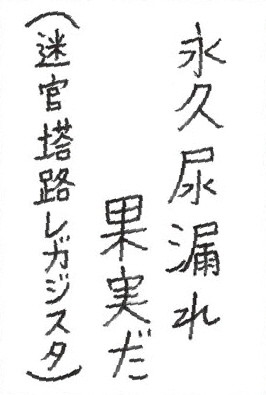 永久尿漏れ
果実だ
(迷官塔路レガジスタ)